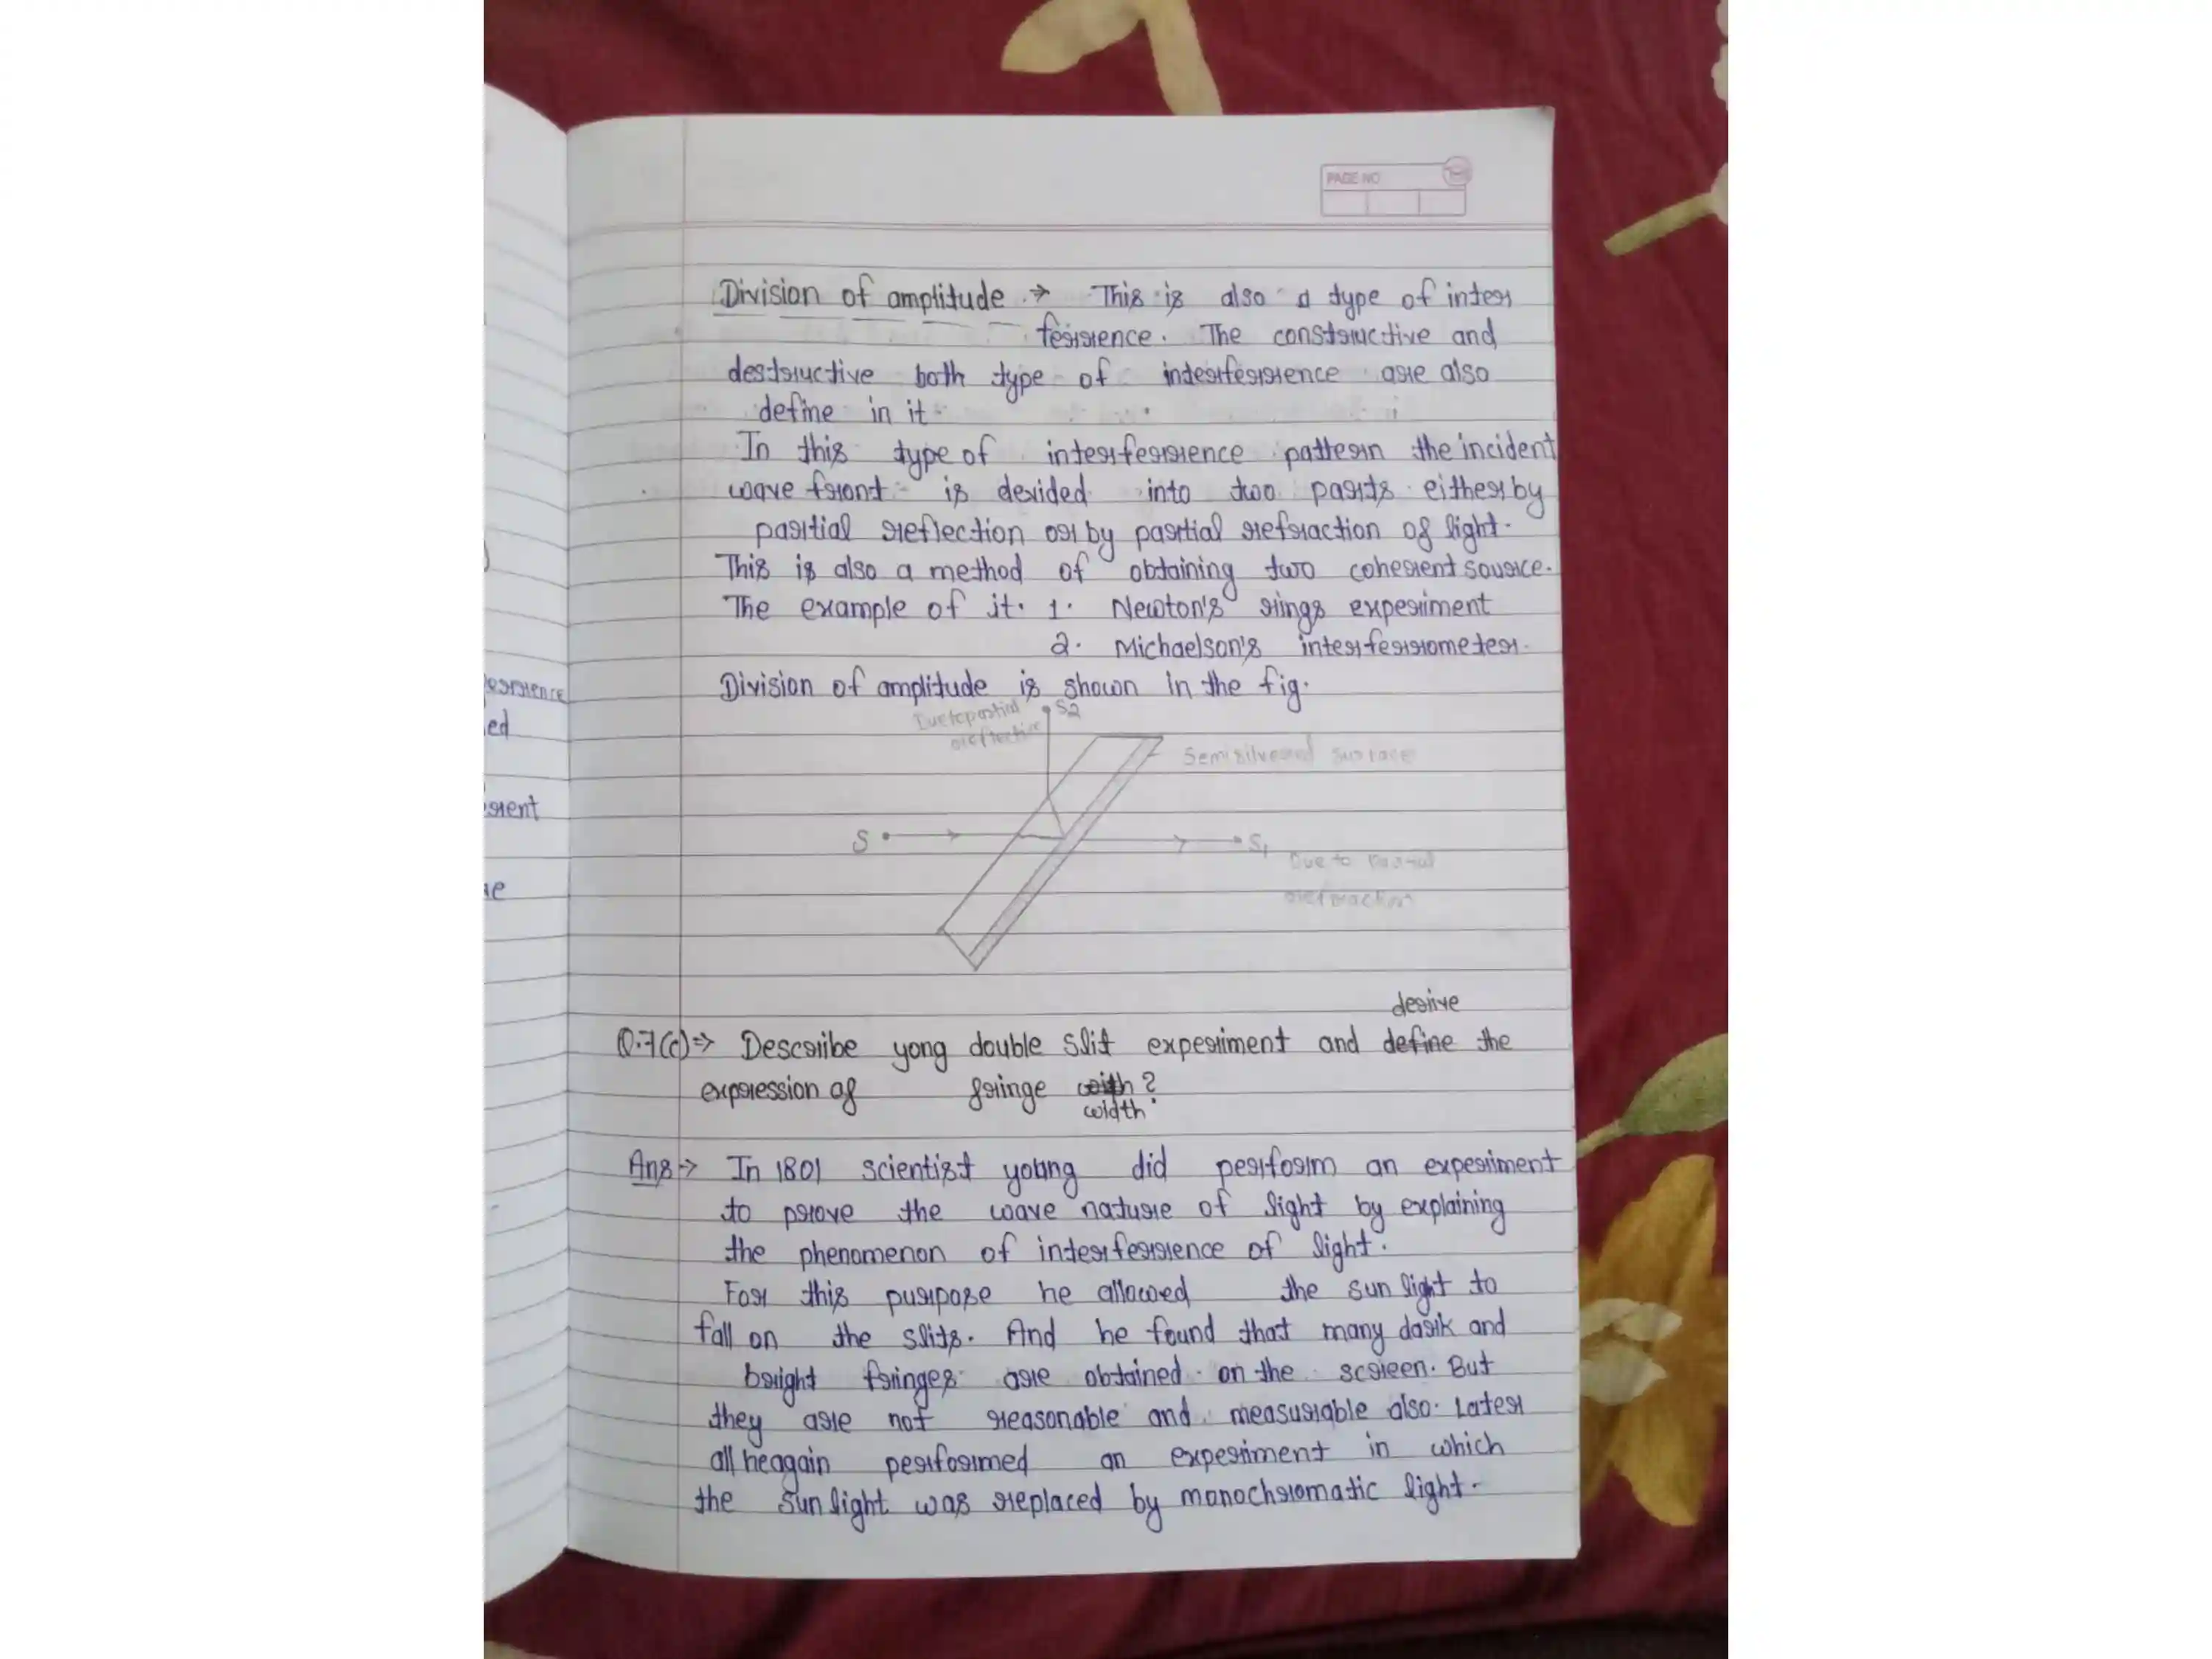 PAGE NO
Division of amplitude → This is also a type of inter
ferrence. The constructive and
destructive both type of interferrence are also
define in it.
In this type of interferrence pattern the incident
wave front is devided into two parts either by
partial reflection or by partial refraction of light.
This is also a method of obtaining two coherent source.
The example of it. 1. Newton's rings experiment
2. Michaelson's interferrometer.
Division of amplitude is shown in the fig.
Due to partial S2
reflective
Semisilvered surface
S S1
Due to Partial
refraction
derive
Q.7(c)⇒ Describe yong double slit experiment and define the
expression of fringe with ?
width
Ans→ In 1801 scientist young did perform an experiment
to prove the wave nature of light by explaining
the phenomenon of interferrence of light.
For this purpose he allowed the sun light to
fall on the slits. And he found that many dark and
bright fringes are obtained on the screen. But
they are not reasonable and measurable also. Later
all heagain performed an experiment in which
the sun light was replaced by monochromatic light.
errence
ed
rent
e